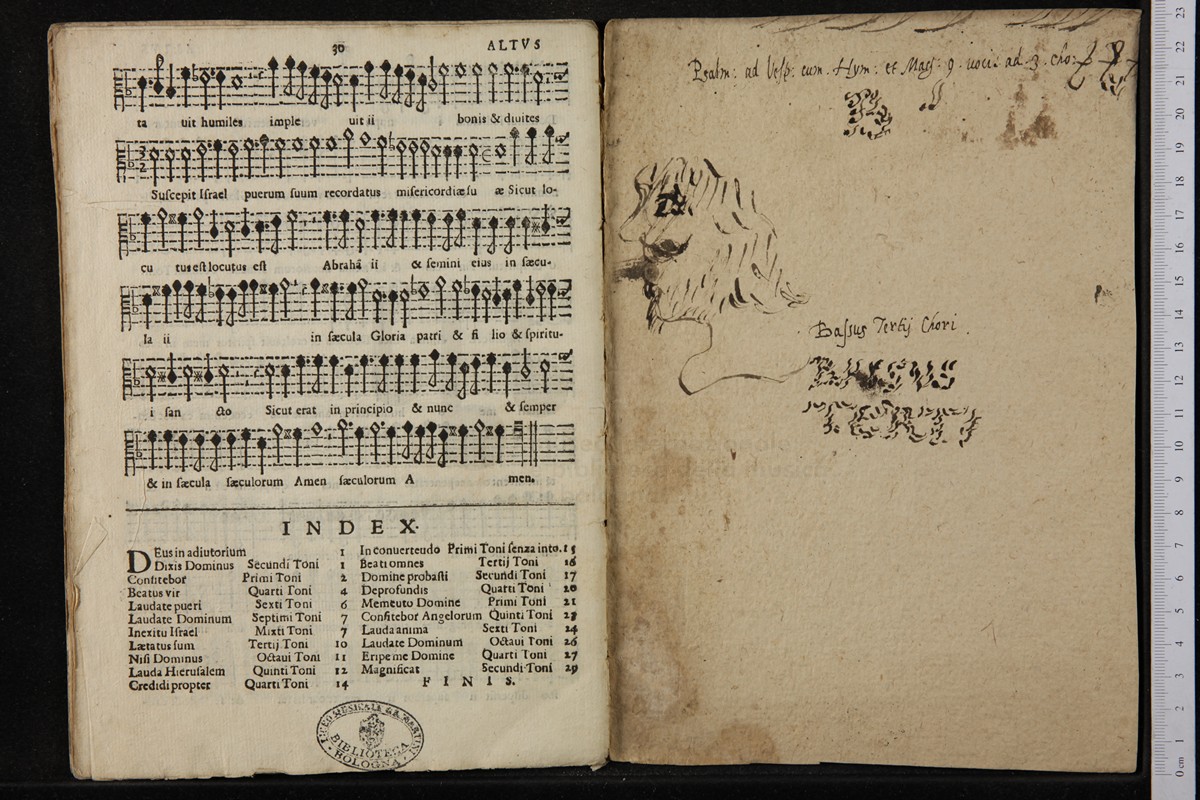 30
ALTVS
ta uit humiles imple uit ii bonis & diuites
Suscepit Israel puerum suum recordatus misericordiæ su æ Sicut lo-
cu tus est locutus est Abrahã ii & semini eius in sæcu-
la ii in sæcula Gloria patri & fi lio & spiritu-
i san cto Sicut erat in principio & nunc & semper
& in sæcula sæculorum Amen sæculorum A men.
INDEX.
DEus in adiutorium 1
Dixis Dominus Secundi Toni 1
Confitebor Primi Toni 2
Beatus vir Quarti Toni 4
Laudate pueri Sexti Toni 6
Laudate Dominum Septimi Toni 7
Inexitu Israel Mixti Toni 7
Lætatus sum Tertij Toni 10
Nisi Dominus Octaui Toni 11
Lauda Hierusalem Quinti Toni 12
Credidi propter Quarti Toni 14
In conuerteudo Primi Toni senza into. 15
Beati omnes Tertij Toni 16
Domine probasti Secundi Toni 17
Deprofundis Quarti Toni 20
Memtuto Domine Primi Toni 21
Confitebor Angelorum Quinti Toni 23
Lauda anima Sexti Toni 24
Laudate Dominum Octaui Toni 26
Eripe me Domine Quarti Toni 27
Magnificat Secundi Toni 29
FINIS.
LICEO MUSICALE G.B. MARTINI
BIBLIOTECA
BOLOGNA
Psalm: ad Vesp: cum Hym: et Mag: 9. uoci: ad 3 cho:
Bassus Tertij Chori
BASSUS
TERTIJ